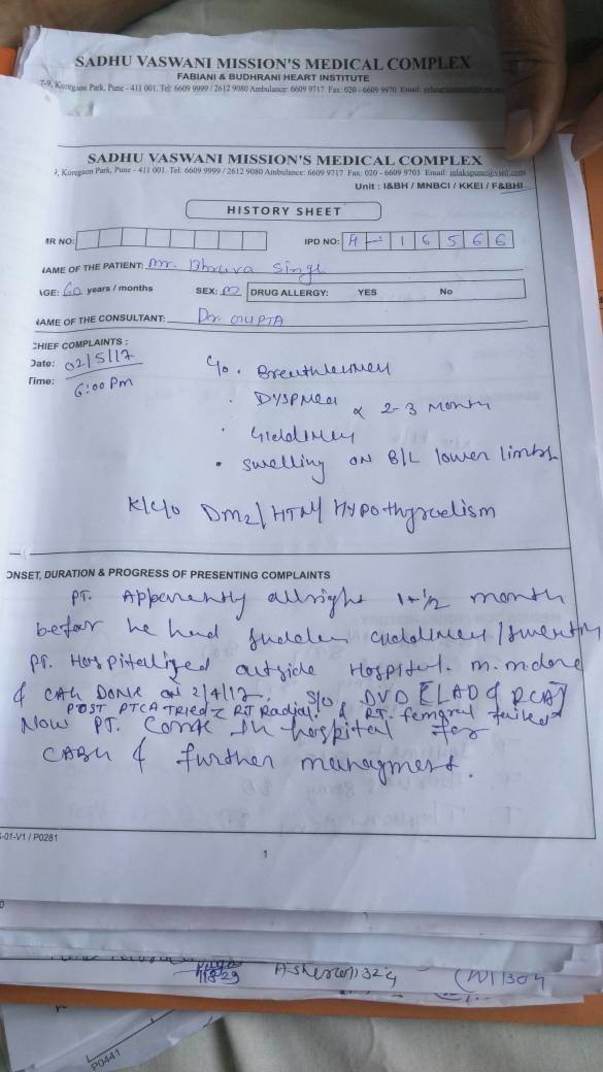 SADHU VASWANI MISSION'S MEDICAL COMPLEX
FABIANI & BUDHRANI HEART INSTITUTE
7-9, Koregaon Park, Pune - 411 001. Tel: 6609 9999 / 2612 9080 Ambulance: 6609 9717 Fax: 020 - 6609 9970 Email:
SADHU VASWANI MISSION'S MEDICAL COMPLEX
9, Koregaon Park, Pune - 411 001. Tel: 6609 9999 / 2612 9080 Ambulance: 6609 9717 Fax: 020 - 6609 9703 Email: inlakspune@vsnl.com
Unit : I&BH / MNBCI / KKEI / F&BHI
HISTORY SHEET
MR NO: IPD NO: H - 16566
NAME OF THE PATIENT: Mr. Dhruva Singh
AGE: 60 years / months SEX: M DRUG ALLERGY: YES No
NAME OF THE CONSULTANT: Dr. GUPTA
CHIEF COMPLAINTS :
Date: 02/5/17
Time: 6:00 Pm
C/o. Breathlessness
DYSPNEA x 2-3 Month
Giddiness
• Swelling ON B/L lower limbs
K/C/O DM2/HTN/Hypothyroedism
ONSET, DURATION & PROGRESS OF PRESENTING COMPLAINTS
PT. Apparently allright 1 1/2 month
befor he had Sudden Guddiness/Sweating
PT. Hospitalized outside Hospital. M.M done
& CAG DONE on 2/4/17. S/O DVD [LAD & RCA]
POST PTCA TRIED RT Radial & RT. femoral failed
Now PT. Come In hospital for
CABG & further managment.
-01-V1 / P0281
1
P0441